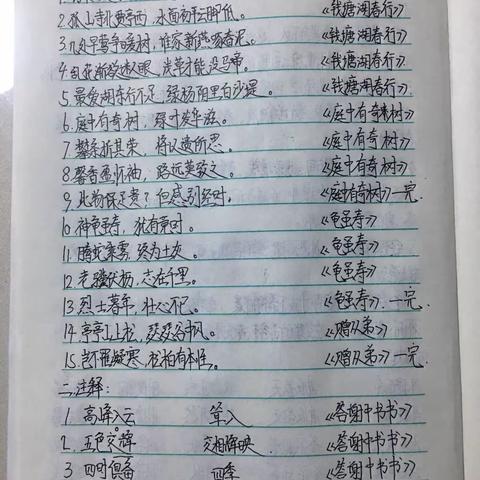 2.孤山寺北贾亭西，水面初平云脚低。 《钱塘湖春行》
3.几处早莺争暖树，谁家新燕啄春泥。 《钱塘湖春行》
4.乱花渐欲迷人眼，浅草才能没马蹄。 《钱塘湖春行》
5.最爱湖东行不足，绿杨阴里白沙堤。 《钱塘湖春行》
6.庭中有奇树，绿叶发华滋。 《庭中有奇树》
7.攀条折其荣，将以遗所思。 《庭中有奇树》
8.馨香盈怀袖，路远莫致之。 《庭中有奇树》
9.此物何足贵？但感别经时。 《庭中有奇树》一完.
10.神龟虽寿，犹有竟时。 《龟虽寿》
11.腾蛇乘雾，终为土灰。 《龟虽寿》
12.老骥伏枥，志在千里。 《龟虽寿》
13.烈士暮年，壮心不已。 《龟虽寿》.一完
14.亭亭山上松，瑟瑟谷中风。 《赠从弟》
15.岂不罹凝寒，松柏有本性。 《赠从弟》一完.
二.注释：
1. 高峰入云 耸入 《答谢中书书》
2. 五色交辉 交相辉映 《答谢中书书》
3 四时俱备 四季 《答谢中书书》